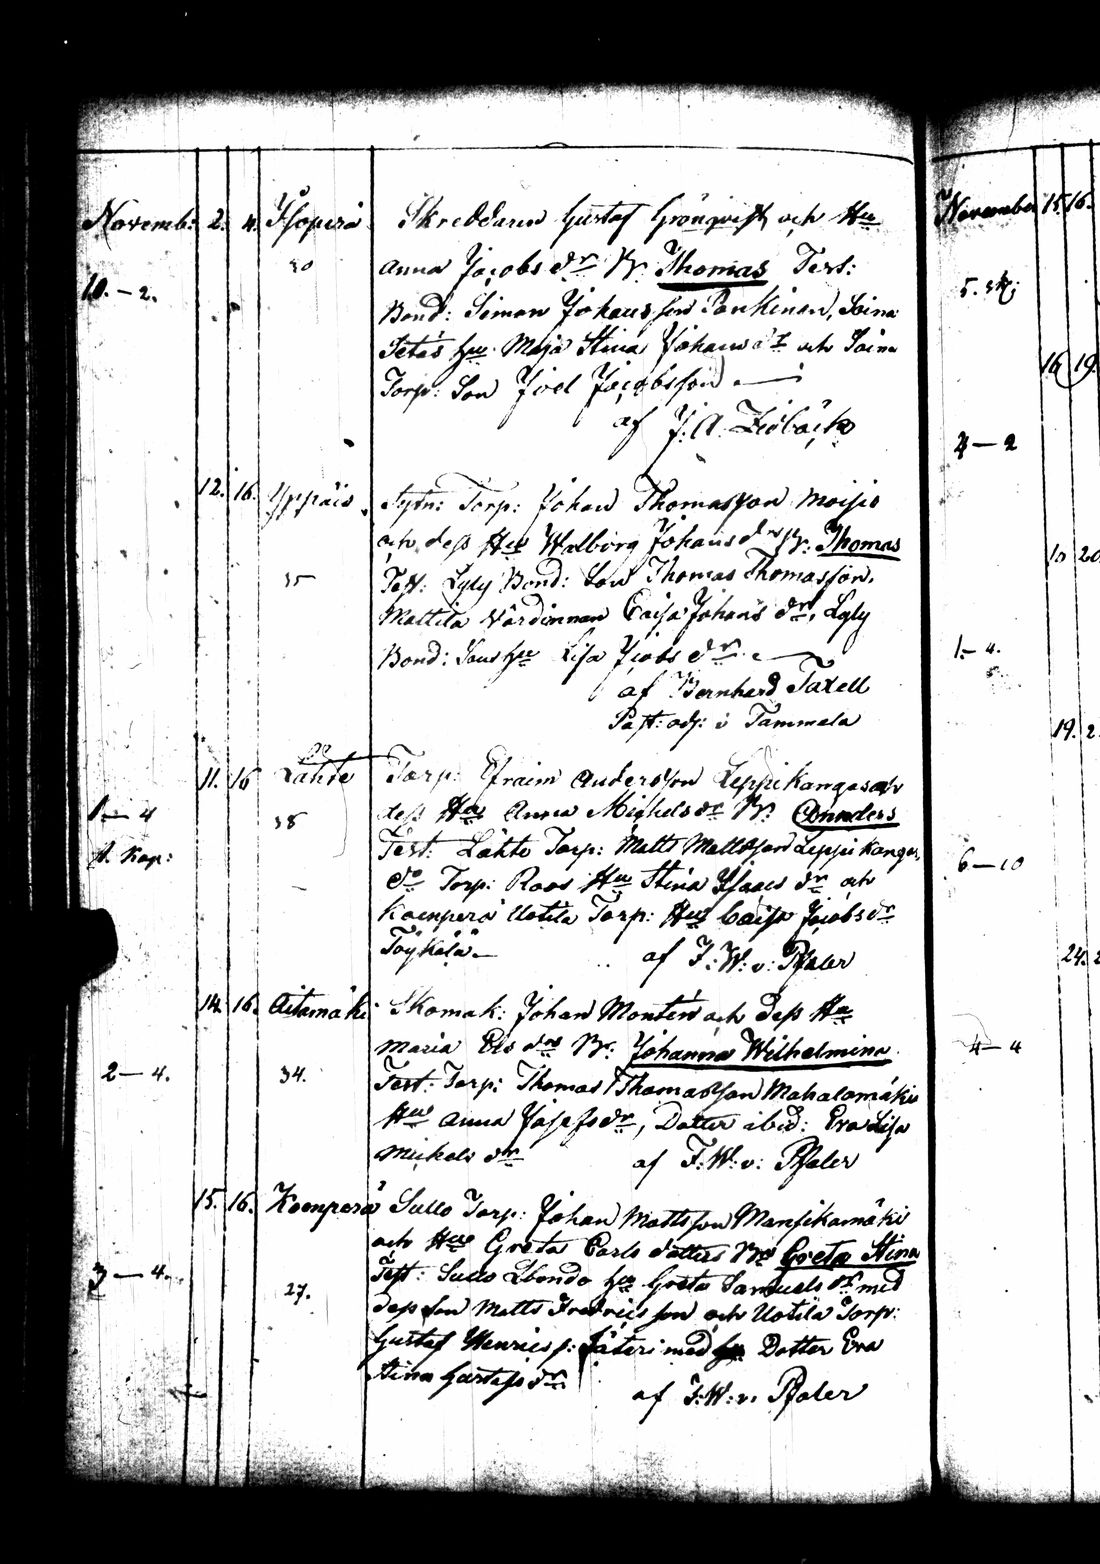 Novemb: 2. 4. Isoperä Skreddaren Gustaf Grönqvist och Hu
30 Anna Jacobs dr Br. Thomas Test:
10. – 2. Bond: Simon Johansson Pankinen, Soina
Hu Maja Stina Johans dr och Soina
Torp: Son Joel Jacobsson
af J. A. Zidbäck
12. 16. Yppäis Torp: Johan Thomasson Moisio
och dess Hu Walborg Johans dr Br: Thomas
35 Test: Lyly Bond: Son Thomas Thomasson,
Mattila Värdinnan Caisa Johans dr, Lyly
Bond: Sons hu Lisa Jacobs dr
af Bernhard Taxell
Past: adj: i Tammela
11. 16 Lahte Torp: Efraim Andersson Leppikangas och
1 – 4 38 dess Hu Anna Michels dr Br. Anders
Kap: Test: Lahte Torp: Matts Mattsson Leppikangas,
do Torp: Roos Hu Stina Isaacs dr och
Koenperä Uotila Torp: Hu Caisa Jacobs dr
Töykälä af F: W: v: Pfaler
14. 16. Aitamäki Skomak: Johan Montén och dess Hu
Maria Els dr Br: Johanna Wilhelmina
2 – 4. 34. Test: Torp: Thomas Thomasson Mahalamäki
Hu Anna Josefs dr, Dotter ibid: Eva Lisa
Michels dr af F: W: v: Pfaler
15. 16. Koenperä Sullo Torp: Johan Mattsson Mansikamäki
och Hu Greta Carls dotter Br Greta Stina
3 – 4. 27. Test: Sullo Ebondo hu Greta Samuels dr med
dess son Matts Fredricsson och Uotila Torp:
Gustaf Henrics s: Säteri med Dotter Eva
Stina Gustafs dr af F: W: v. Pfaler
November 15 16.
5. 
16 19.
4 – 2
20
1. – 4.
19. 2
6 – 10
24. 2
4 – 4